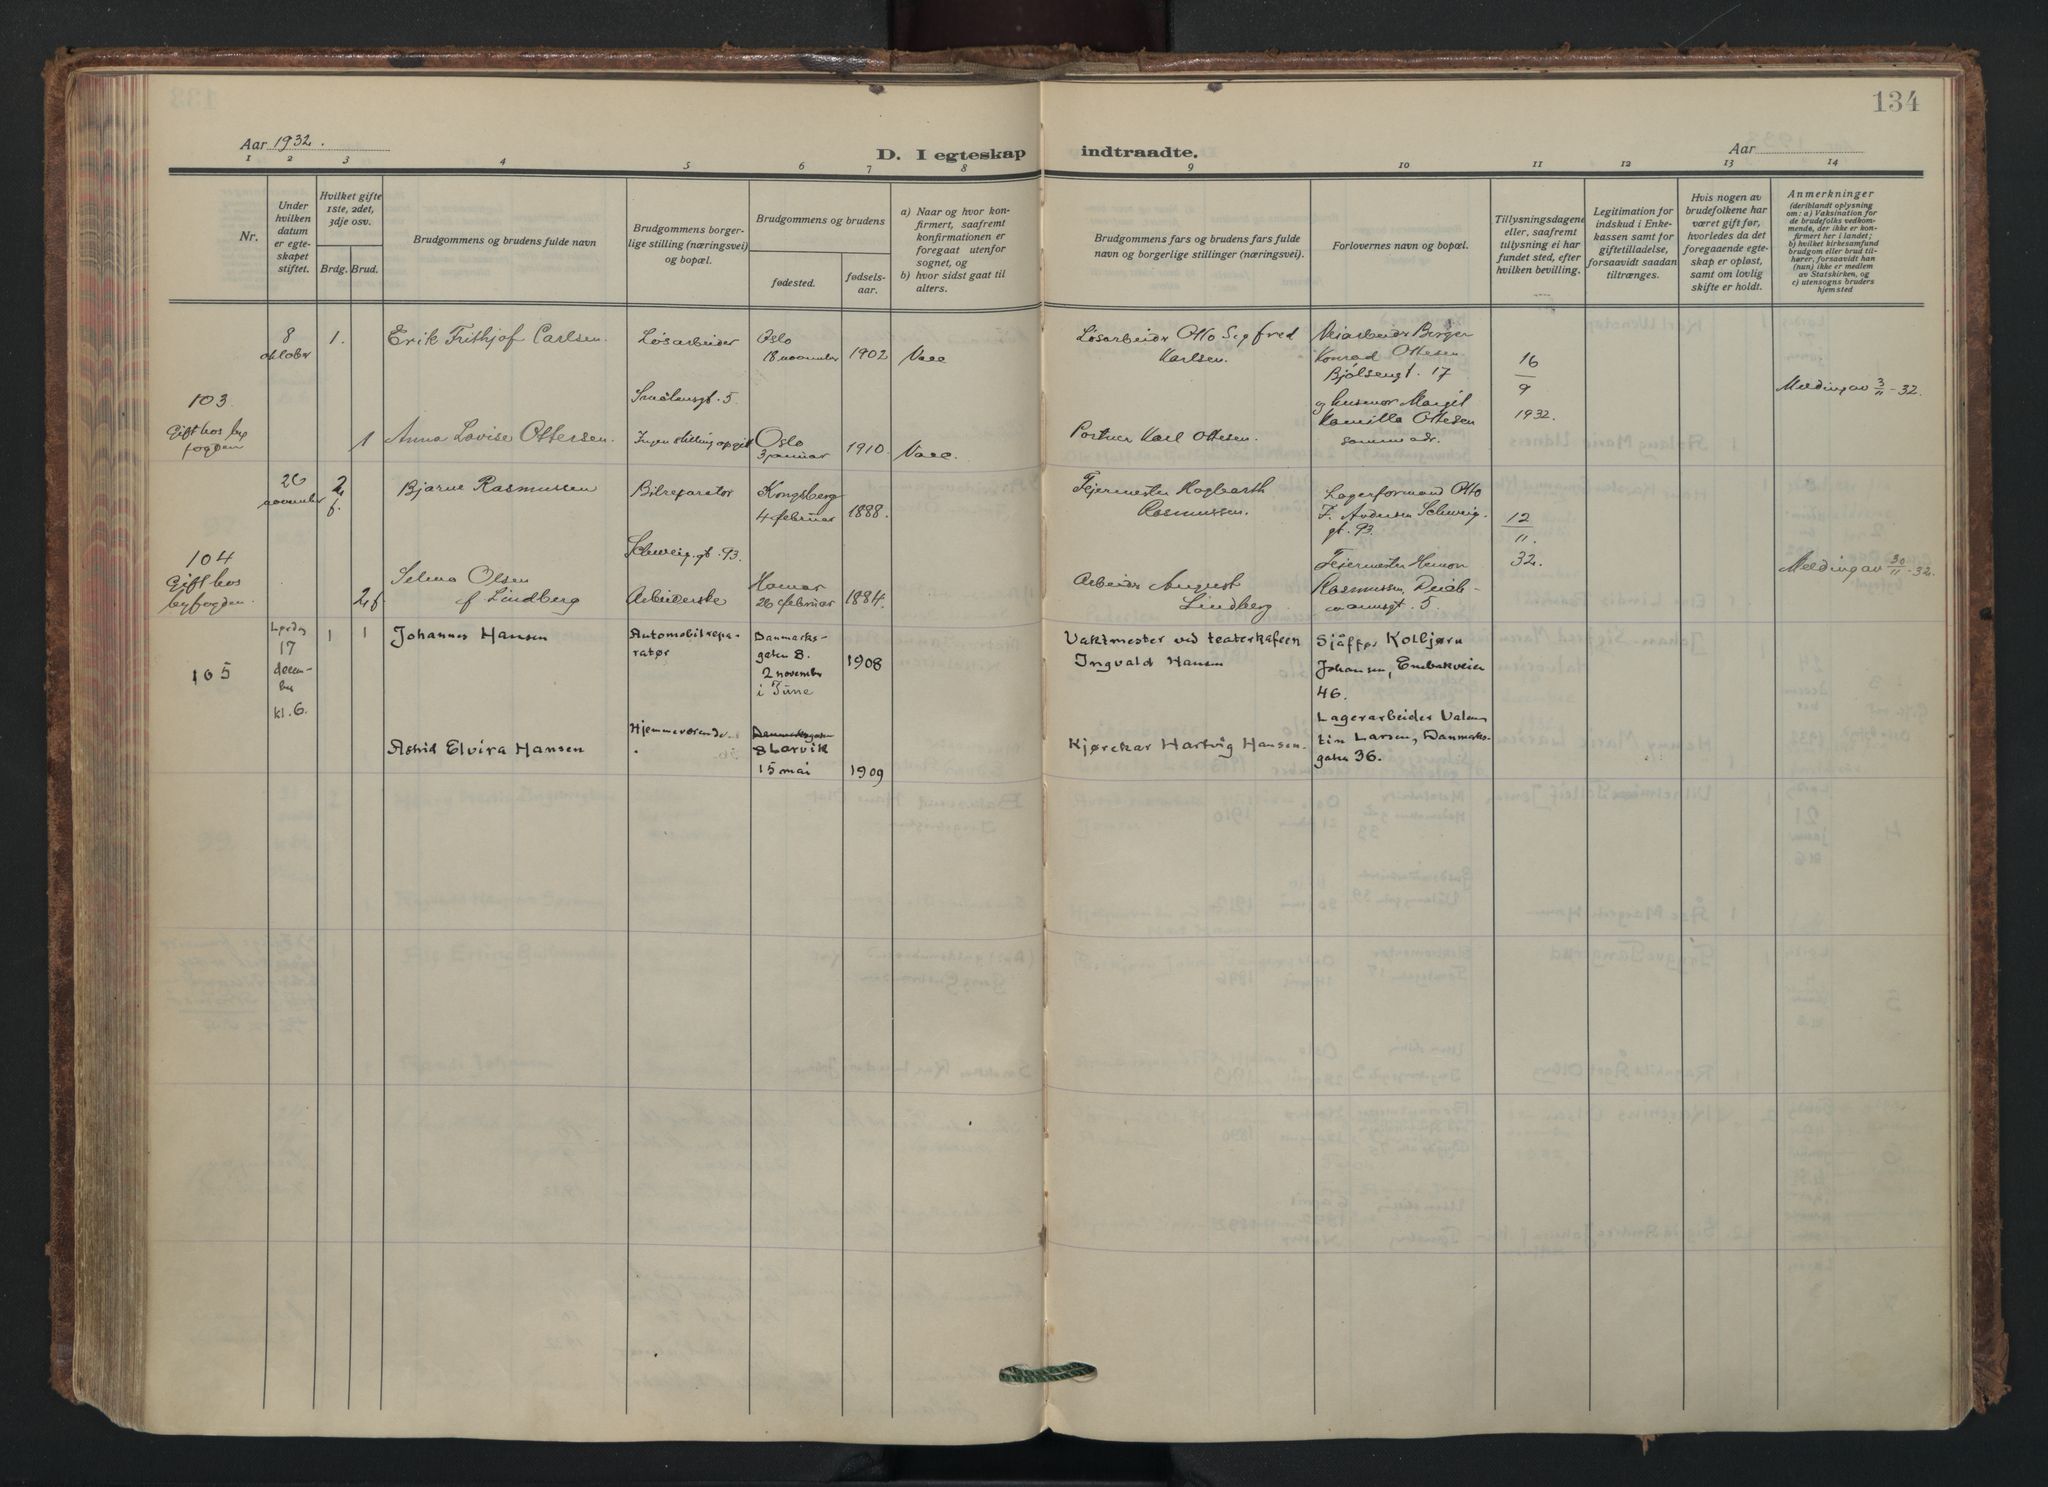 134
Aar 1932.
D. I egteskap indtraadte.
Aar
1 2 3 4 5 6 7 8 9 10 11 12 13 14
Nr.
Under
hvilken
datum
er egte-
skapet
stiftet.
Hvilket gifte
1ste, 2det,
3dje osv.
Brdg. Brud.
Brudgommens og brudens fulde navn
Brudgommens borger-
lige stilling (næringsvei)
og bopæl.
Brudgommens og brudens
fødested.
fødsels-
aar.
a) Naar og hvor kon-
firmert, saafremt
konfirmationen er
foregaat utenfor
sognet, og
b) hvor sidst gaat til
alters.
Brudgommens fars og brudens fars fulde
navn og borgerlige stillinger (næringsvei).
Forlovernes navn og bopæl.
Tillysningsdagene
eller, saafremt
tillysning ei har
fundet sted, efter
hvilken bevilling.
Legitimation for
indskud i Enke-
kassen samt for
giftetilladelse,
forsaavidt saadan
tiltrænges.
Hvis nogen av
brudefolkene har
været gift før,
hvorledes da det
foregaaende egte-
skap er opløst,
samt om lovlig
skifte er holdt.
Anmerkninger
(deriblandt oplysning
om: a) Vaksination for
de brudefolks vedkom-
mende, der ikke er kon-
firmert her i landet;
b) hvilket kirkesamfund
brudgom eller brud til-
hører, forsaavidt han
(hun) ikke er medlem
av Statskirken, og
c) utensogns bruders
hjemsted
103
Gift hos by
fogden
8
oktober
1.
Erik Frithjof Carlsen.
Løsarbeider
Smålensgt. 5.
Oslo
18 november
1902
Vaal
Løsarbeider Otto Sigfred
Karlsen.
Veiarbeider Berger
Konrad Ottesen
Bjølsengt. 17
og husmor Margit
Kamilla Ottesen
samme adr.
16
9
1932.
Melding av 3/11-32.
1
Anna Lovise Ottersen.
Ingen stilling opgit
Oslo
3 januar
1910.
Vaal.
Portner Karl Ottesen.
104
Gift hos
byfogden.
26
november
2
f.
Bjarne Rasmussen
Bilreparatør
Schweig. gt. 93.
Kongsberg
4 februar
1888.
Feiermester Hagbarth
Rasmussen.
Lagerformand Otto
F. Andersen Schweig.
gt. 93.
Feiermester Hemon
Rasmussen, Deich-
mannsgt. 5.
12
11.
32.
Melding av 30/11-32.
2 f.
Selma Olsen
f Lindberg
Arbeiderske
Hamar
26 februar
1884.
Arbeider August
Lindberg.
105
Lørdag
17
decem-
ber
kl. 6.
1
1
Johannes Hansen
Automobilrepa-
ratør
Danmarks-
gaten 8.
2 november
i Tune
1908
Vaktmester ved teaterkafeen
Ingvald Hansen
Sjåffør Kolbjørn
Johansen, Enebakveien
46.
Lagerarbeider Valen-
tin Larsen, Danmarks-
gaten 36.
Astrid Elvira Hansen
Hjemmeværende.
Danmarksgaten
8 Larvik
15 mai
1909
Kjørekar Hartvig Hansen.